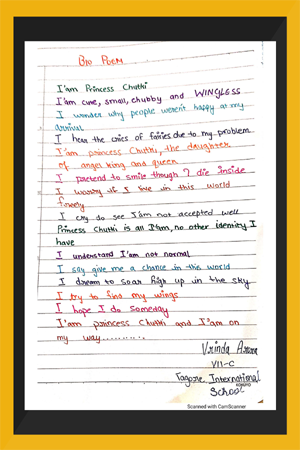 Bio Poem
I'am Princess Chutki
I'am cute, small, chubby and WINGLESS
I wonder why people weren't happy at my
arrival
I hear the cries of fairies due to my problem
I'am princess Chutki, the daughter
of angel king and queen
I pretend to smile though I die inside
I worry if I live in this world
freely
I cry do see I'am not accepted well
Princess Chutki is all I'am, no other identity I
have
I understand I'am not normal
I say give me a chance in this world
I dream to soar high up in the sky
I try to find my wings
I hope I do someday
I'am princess Chutki and I'am on
my way..........
Vrinda Arora
VII-C
Tagore International
School
Scanned with CamScanner